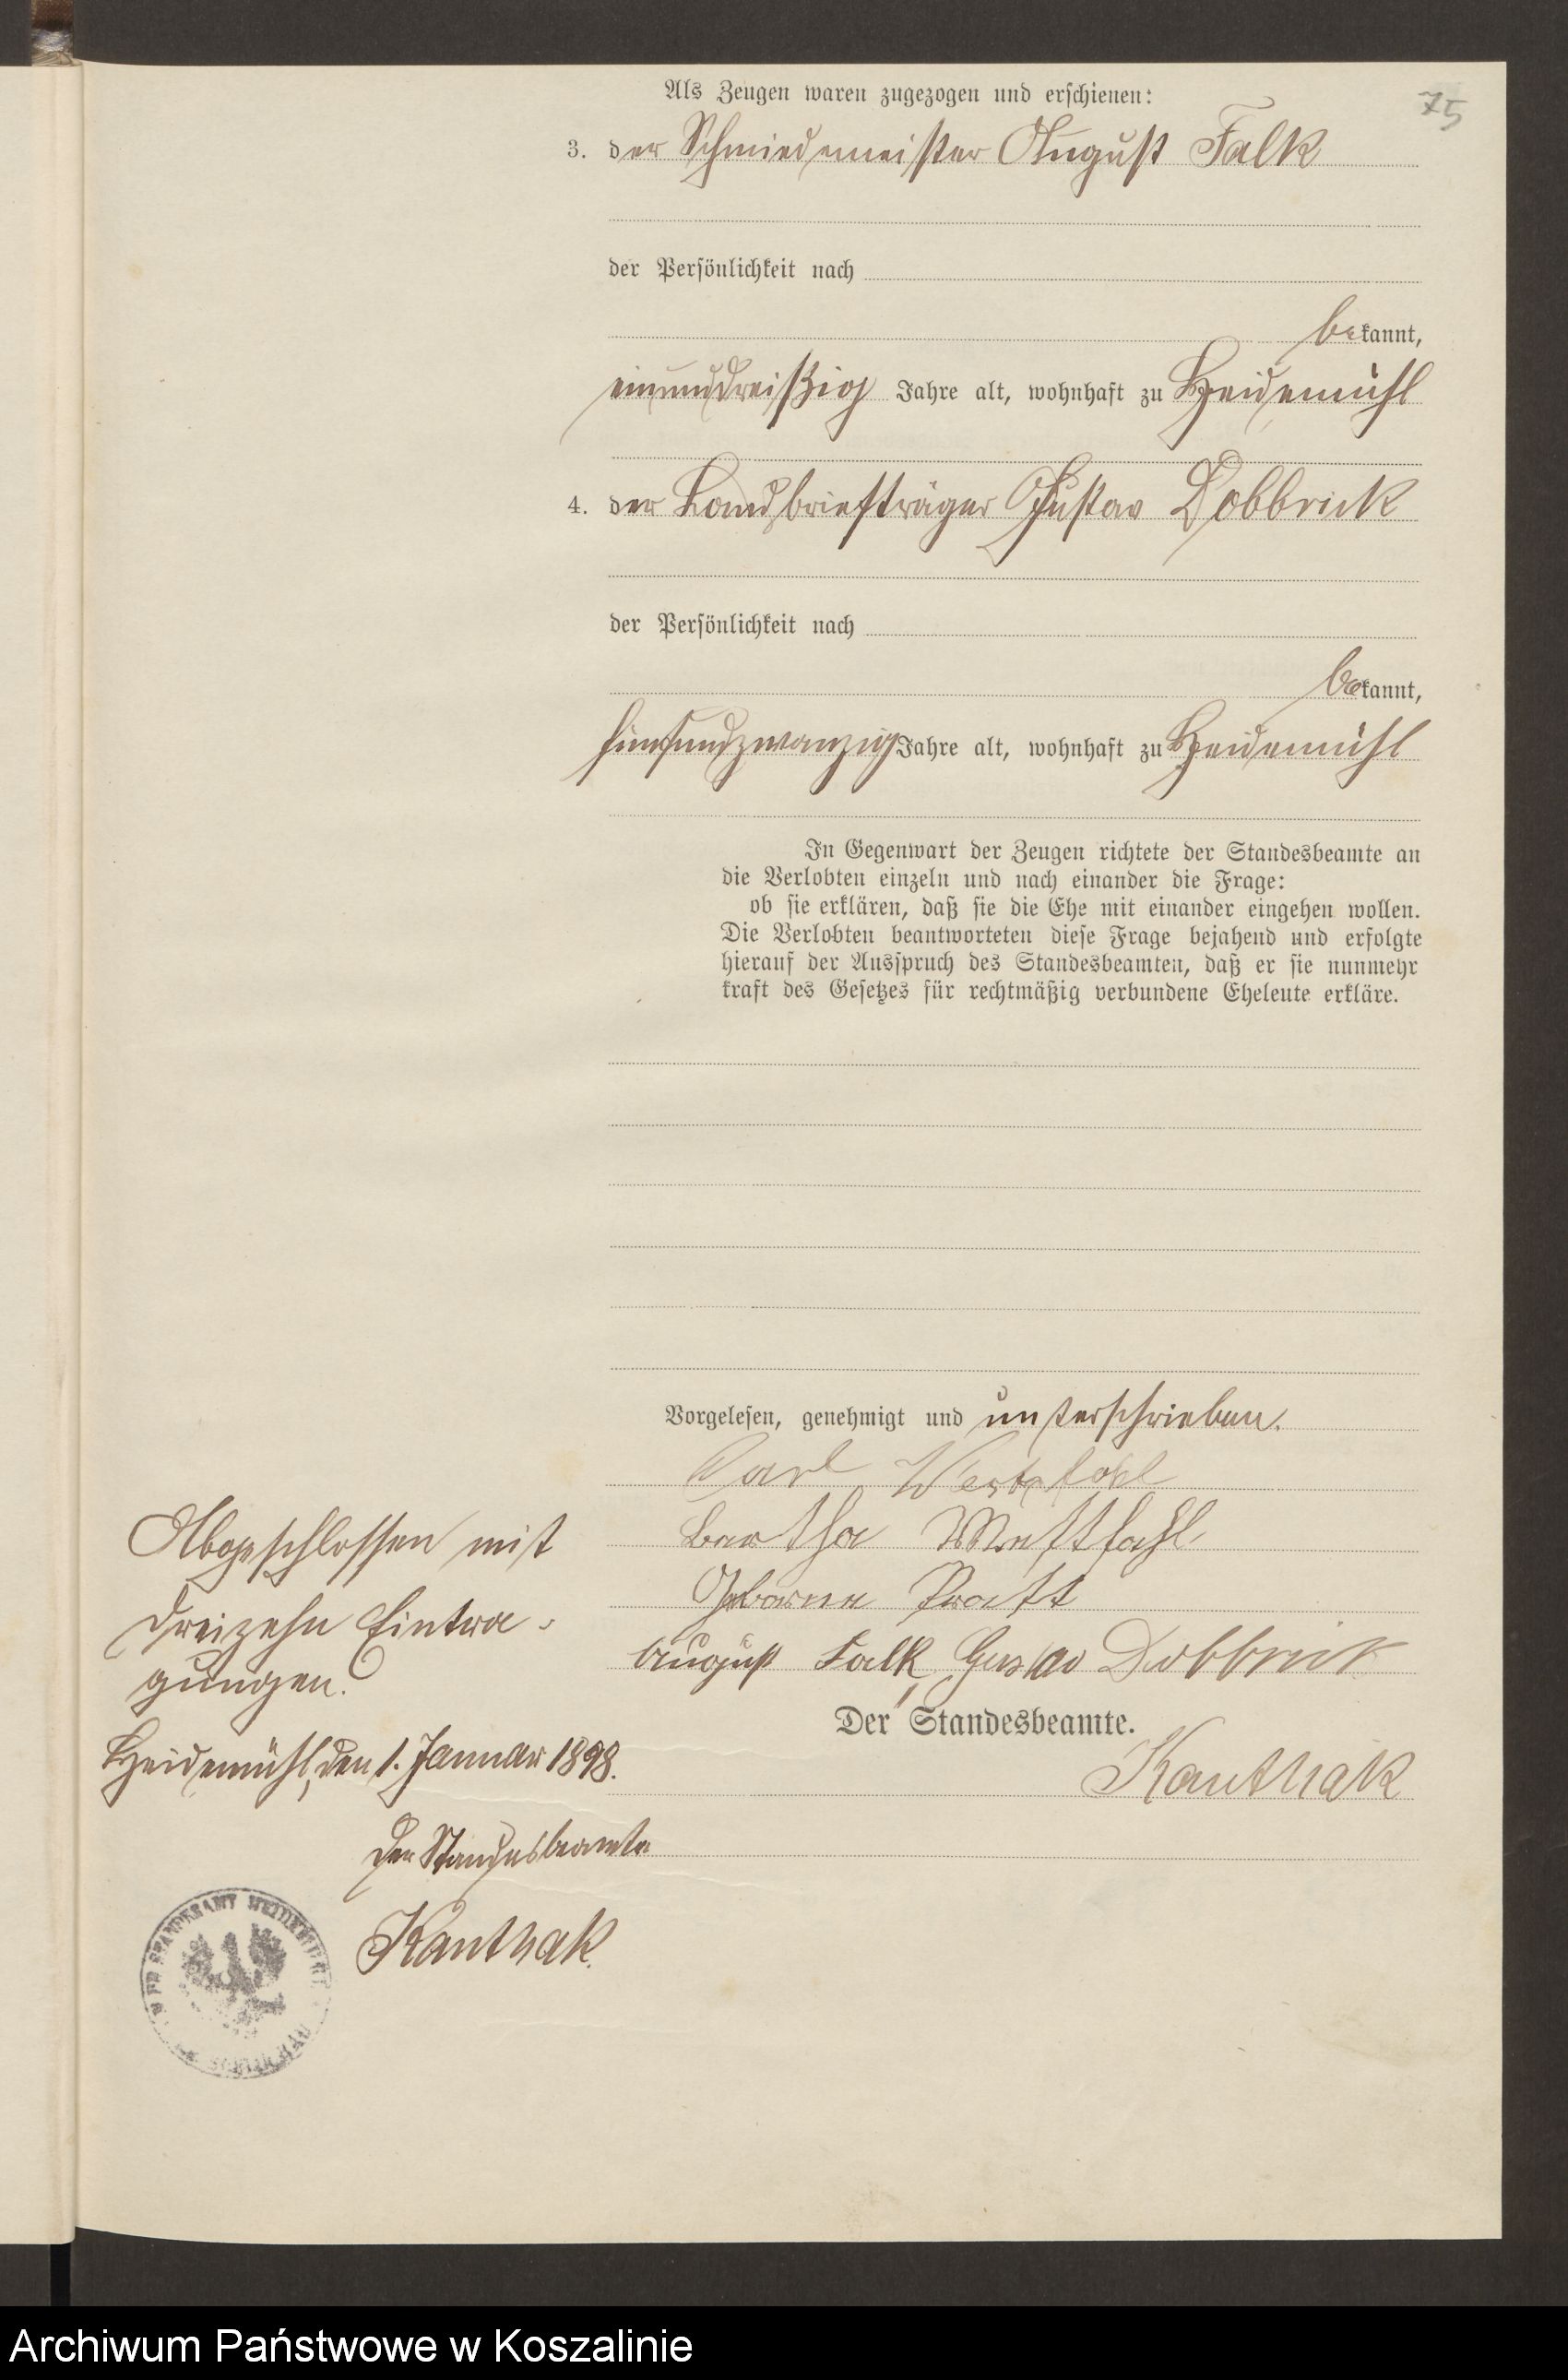 75
Als Zeugen waren zugezogen und erschienen:
3. der Schmiedemeister August Falk
der Persönlichkeit nach
bekannt,
einunddreißig Jahre alt, wohnhaft zu Heidemühl
4. der Landbriefträger Gustav Dobbrick
der Persönlichkeit nach
bekannt,
fünfundzwanzig Jahre alt, wohnhaft zu Heidemühl
In Gegenwart der Zeugen richtete der Standesbeamte an
die Verlobten einzeln und nach einander die Frage:
ob sie erklären, daß sie die Ehe mit einander eingehen wollen.
Die Verlobten beantworteten diese Frage bejahend und erfolgte
hierauf der Ausspruch des Standesbeamten, daß er sie nunmehr
kraft des Gesetzes für rechtmäßig verbundene Eheleute erkläre.
Vorgelesen, genehmigt und unterschrieben.
Carl Westpfahl
Bertha
Geborene
August Falk, Gustav Dobbrick
Der Standesbeamte.
Kanthak
Abgeschlossen mit
dreizehn Eintra-
gungen.
Heidemühl, den 1. Januar 1898.
Der Standesbeamte
Kanthak.
STANDESAMT HEIDEMÜHL
SCHLOCHAU
Archiwum Państwowe w Koszalinie